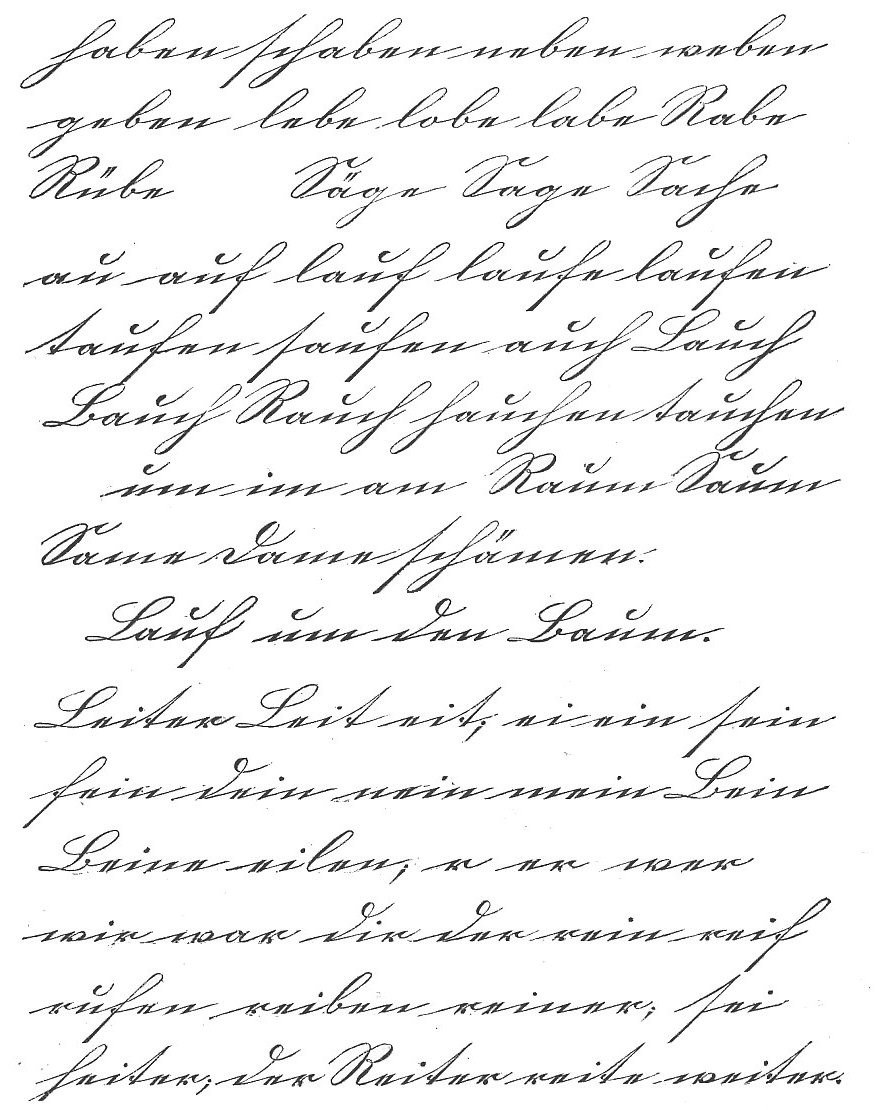 haben schaben neben weben
geben lebe lobe labe Rabe
Rübe Säge Sage Sache
au auf lauf laufe laufen
taufen saufen auch Lauch
Bauch Rauch hauchen tauchen
um im am Raum Saum
Same Dame schämen.
Lauf um den Baum.
Leiter Leit eit; ei ein sein
fein dein nein mein Bein
Beine eilen; r er wer
wir war dir der rein reif
rufen reiben reiner; sei
heiter; der Reiter reite weiter.